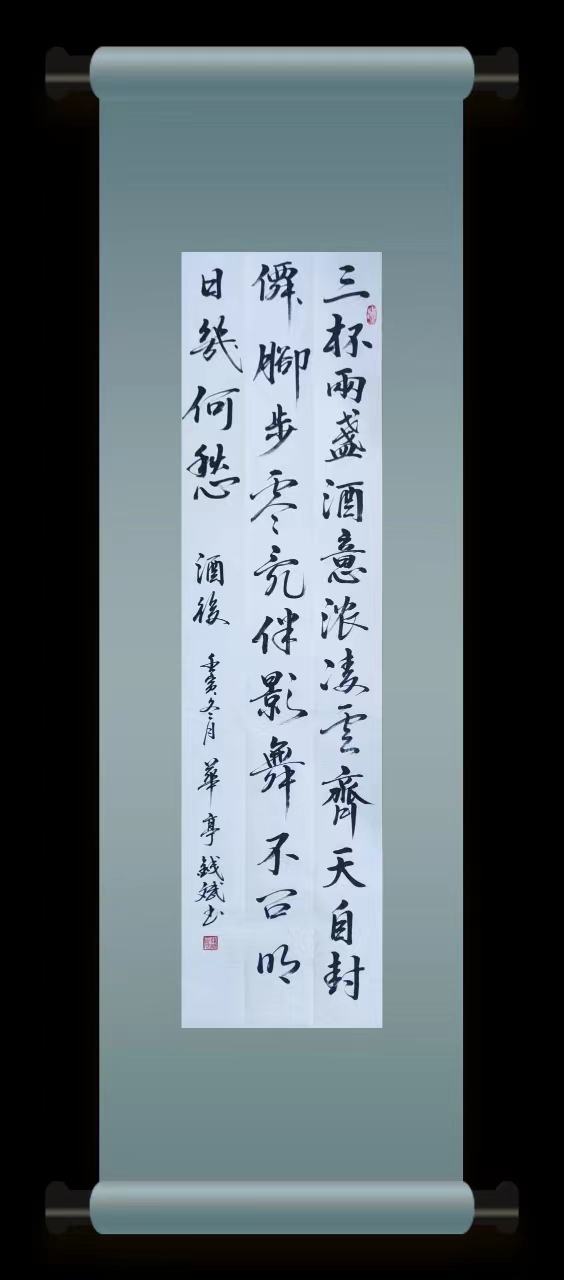 三杯兩盞酒意浓凌雲齊天自封
僊腳步零乱伴影舞不问明
日幾何愁 酒後 壬寅冬月 華亭錢斌书